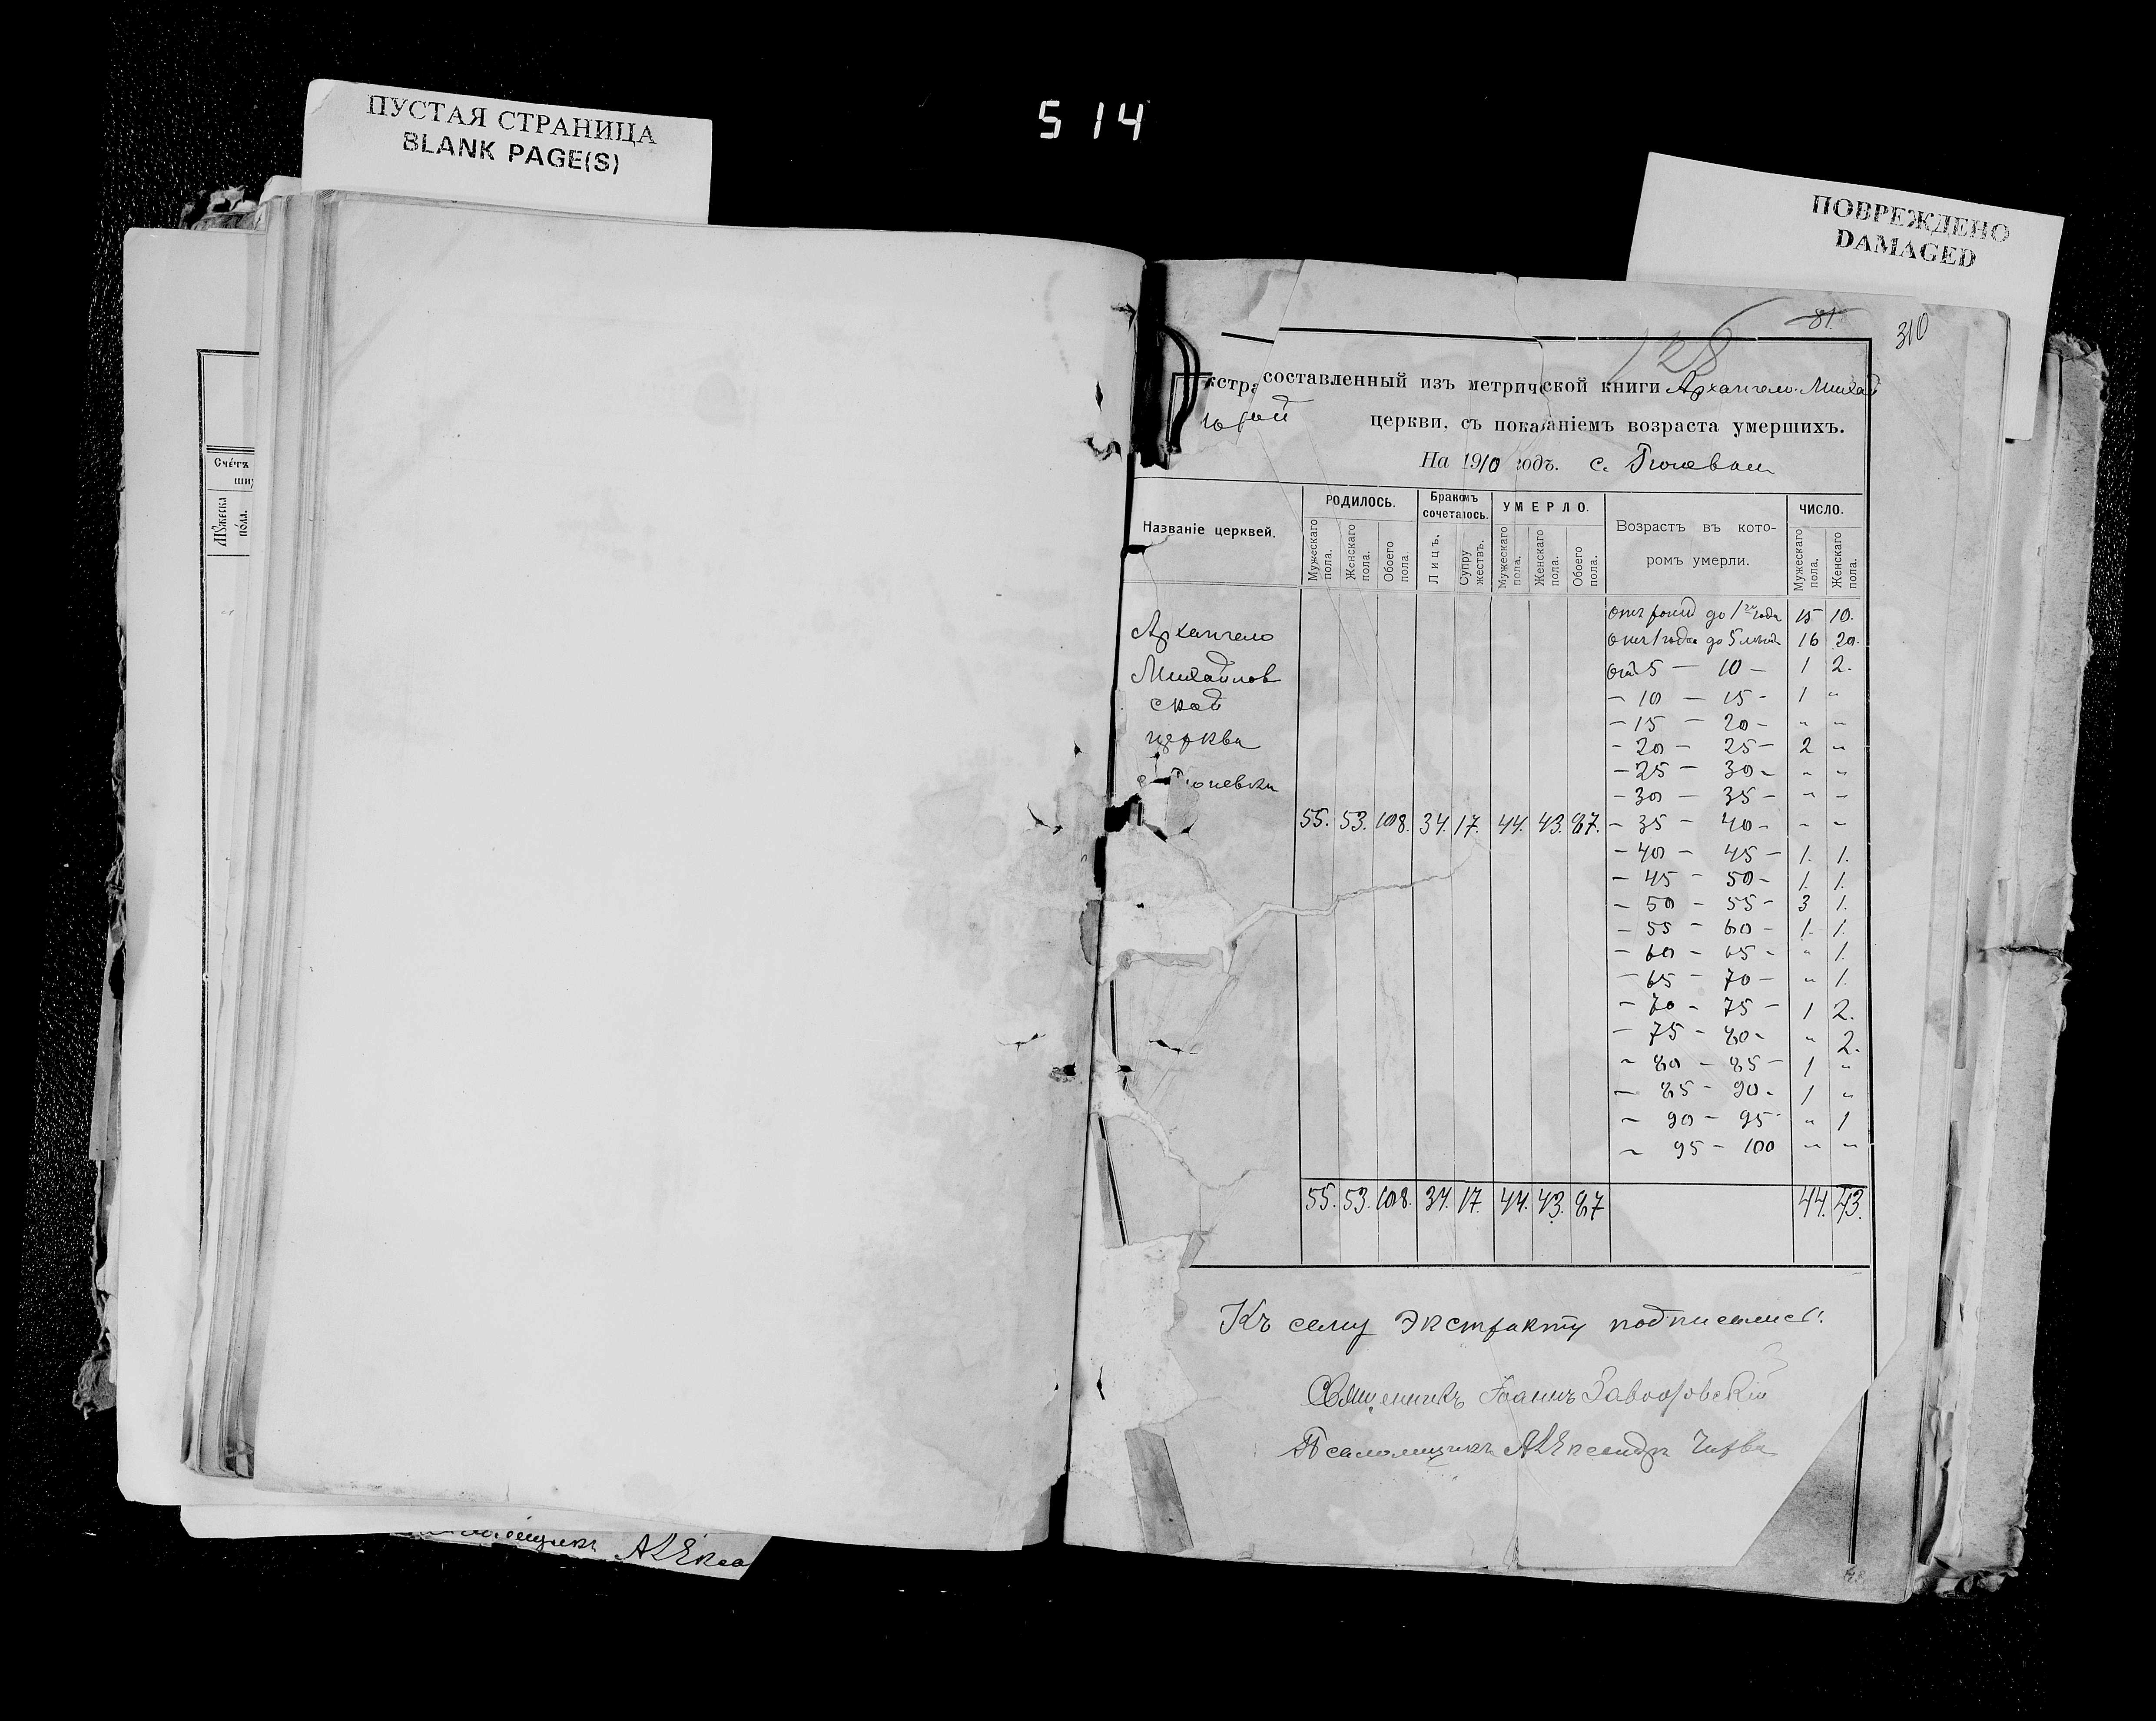 514
ПУСТАЯ СТРАНИЦА
BLANK PAGE(S)
ПОВРЕЖДЕНО
DAMAGED
81.
310
128
кстра составленный изъ метрической книги Архангело-Михай
церкви, съ показаніемъ возраста умершихъ.
На 1910 годъ. с.
Счетъ
Мꙋжеска
пола.
Названіе церквей.
РОДИЛОСЬ.
Мужескаго пола.
Женскаго пола.
Обоего пола.
Бракомъ сочеталось.
Лицъ.
Супружествъ.
УМЕРЛО.
Мужескаго пола.
Женскаго пола.
Обоего пола.
Возрастъ въ которомъ умерли.
ЧИСЛО.
Мужескаго пола.
Женскаго пола.
Архангело
Михайлов
ской
церкви
55. 53. 108. 34. 17. 44. 43. 87.
отъ рожд до 1го года 15 10.
отъ 1 года до 5 лѣтъ 16 20.
отъ 5 — 10 — 1 2.
— 10 — 15 - 1 "
— 15 — 20 - " "
- 20 - 25 - 2 "
- 25 - 30 - " "
- 30 - 35 - " "
- 35 - 40 - " "
- 40 - 45 - 1. 1.
- 45 - 50 - 1. 1.
- 50 - 55 - 3 1.
- 55 - 60 - 1. 1.
- 60 - 65 - " 1.
- 65 - 70 - " 1.
- 70 - 75 - 1 2.
- 75 - 80 - " 2.
- 80 - 85 - 1 "
- 85 - 90 - 1 "
- 90 - 95 - " 1
- 95 - 100 " "
55. 53. 108. 34. 17. 44. 43. 87 44. 43.
Къ сему экстракту подписались:
Священникъ Іоаннъ
Псаломщикъ Александръ
Алекса